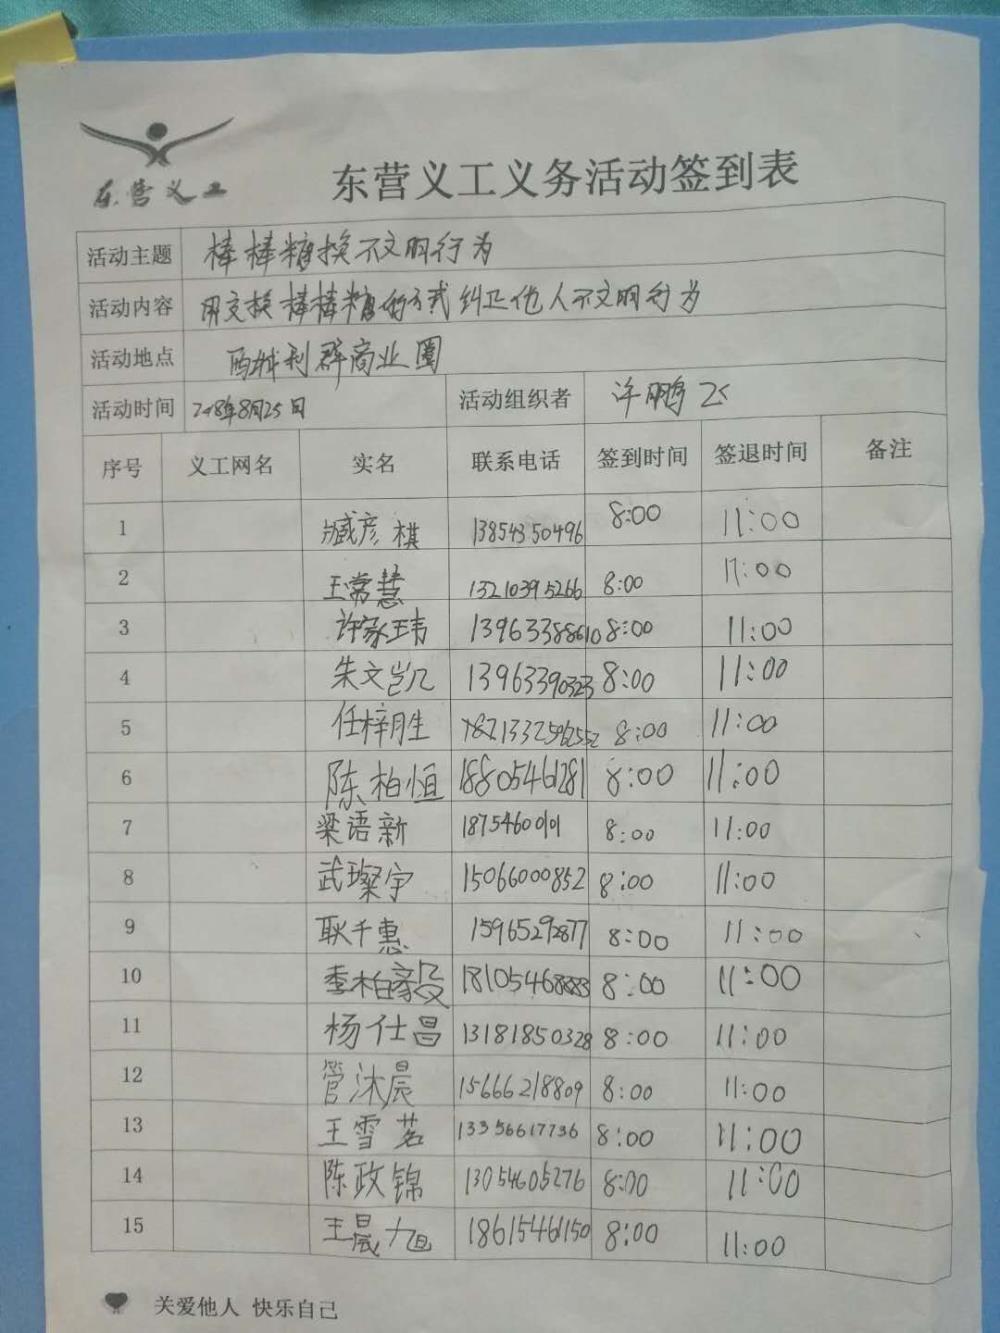 东营义工
东营义工义务活动签到表
活动主题 棒棒糖换不文明行为
活动内容 用交换棒棒糖的方式纠正他人不文明行为
活动地点 西城利群商业圈
活动时间 2018年8月25日 活动组织者 许鹏飞
序号 义工网名 实名 联系电话 签到时间 签退时间 备注
1 臧彦棋 13854350496 8:00 11:00
2 王常慧 13210395266 8:00 11:00
3 许家玮 13963388610 8:00 11:00
4 朱文凯 13963390323 8:00 11:00
5 任梓胜 8:00 11:00
6 陈柏恒 18805461281 8:00 11:00
7 梁语新 8:00 11:00
8 武璨宇 15066000852 8:00 11:00
9 耿千惠 15965292877 8:00 11:00
10 李柏毅 8:00 11:00
11 杨仕昌 13181850328 8:00 11:00
12 管沐晨 15666218809 8:00 11:00
13 王雪茗 13356617736 8:00 11:00
14 陈政锦 13054605276 8:00 11:00
15 王晟旭 18615461150 8:00 11:00
关爱他人 快乐自己